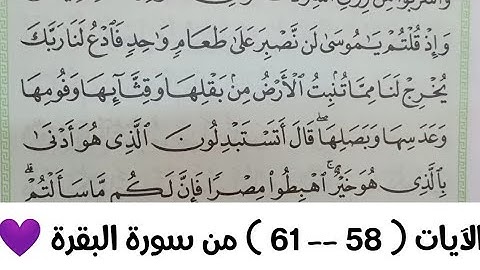 وَإِذْ قُلْتُمْ يَٰمُوسَىٰ لَن نَّصْبِرَ عَلَىٰ طَعَامٍ وَٰحِدٍ فَٱدْعُ لَنَا رَبَّكَ
يُخْرِجْ لَنَا مِمَّا تُنۢبِتُ ٱلْأَرْضُ مِنۢ بَقْلِهَا وَقِثَّآئِهَا وَفُومِهَا
وَعَدَسِهَا وَبَصَلِهَا ۖ قَالَ أَتَسْتَبْدِلُونَ ٱلَّذِى هُوَ أَدْنَىٰ
بِٱلَّذِى هُوَ خَيْرٌ ۚ ٱهْبِطُوا۟ مِصْرًا فَإِنَّ لَكُم مَّا سَأَلْتُمْ ۗ
الآيات ( 58 -- 61 ) من سورة البقرة 💜